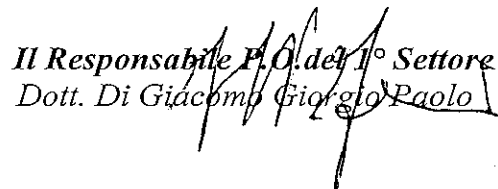 Il Responsabile P.O. del 1° Settore
Dott. Di Giacomo Giorgio Paolo